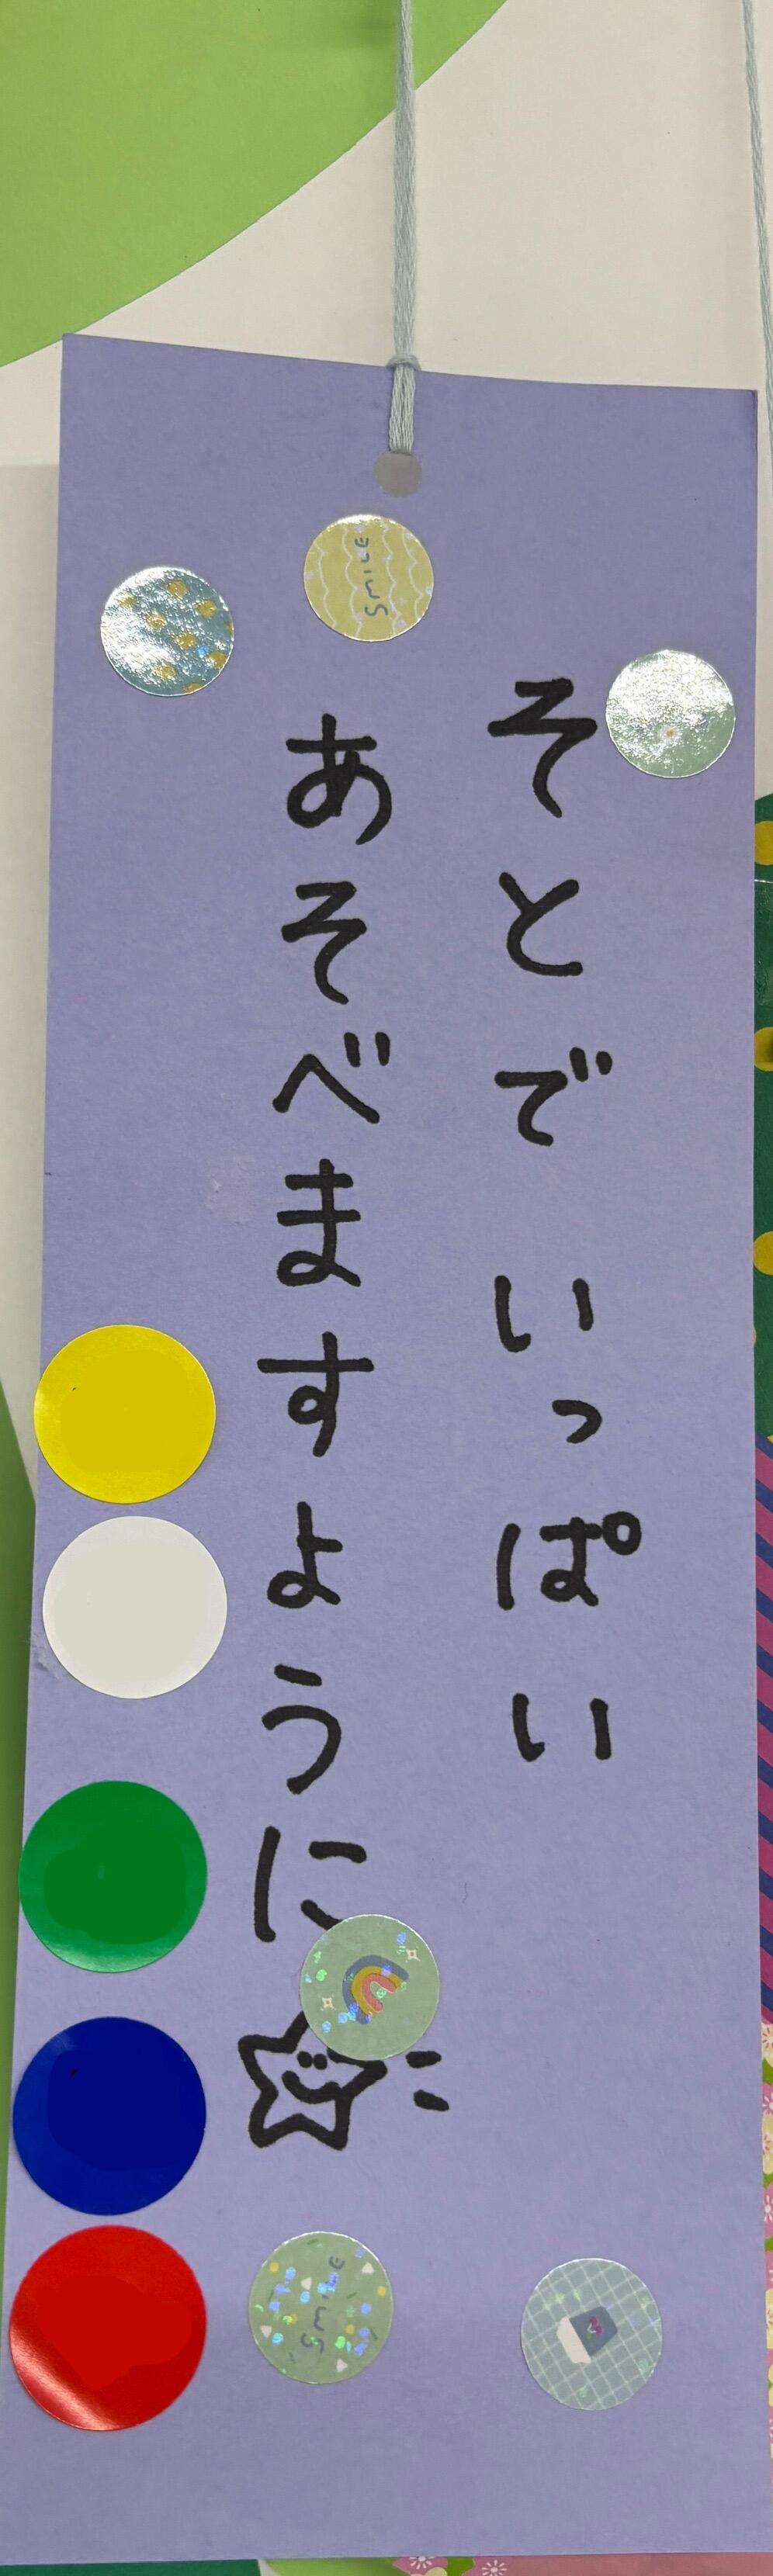 そとで いっぱい
あそべますように
smile
smile